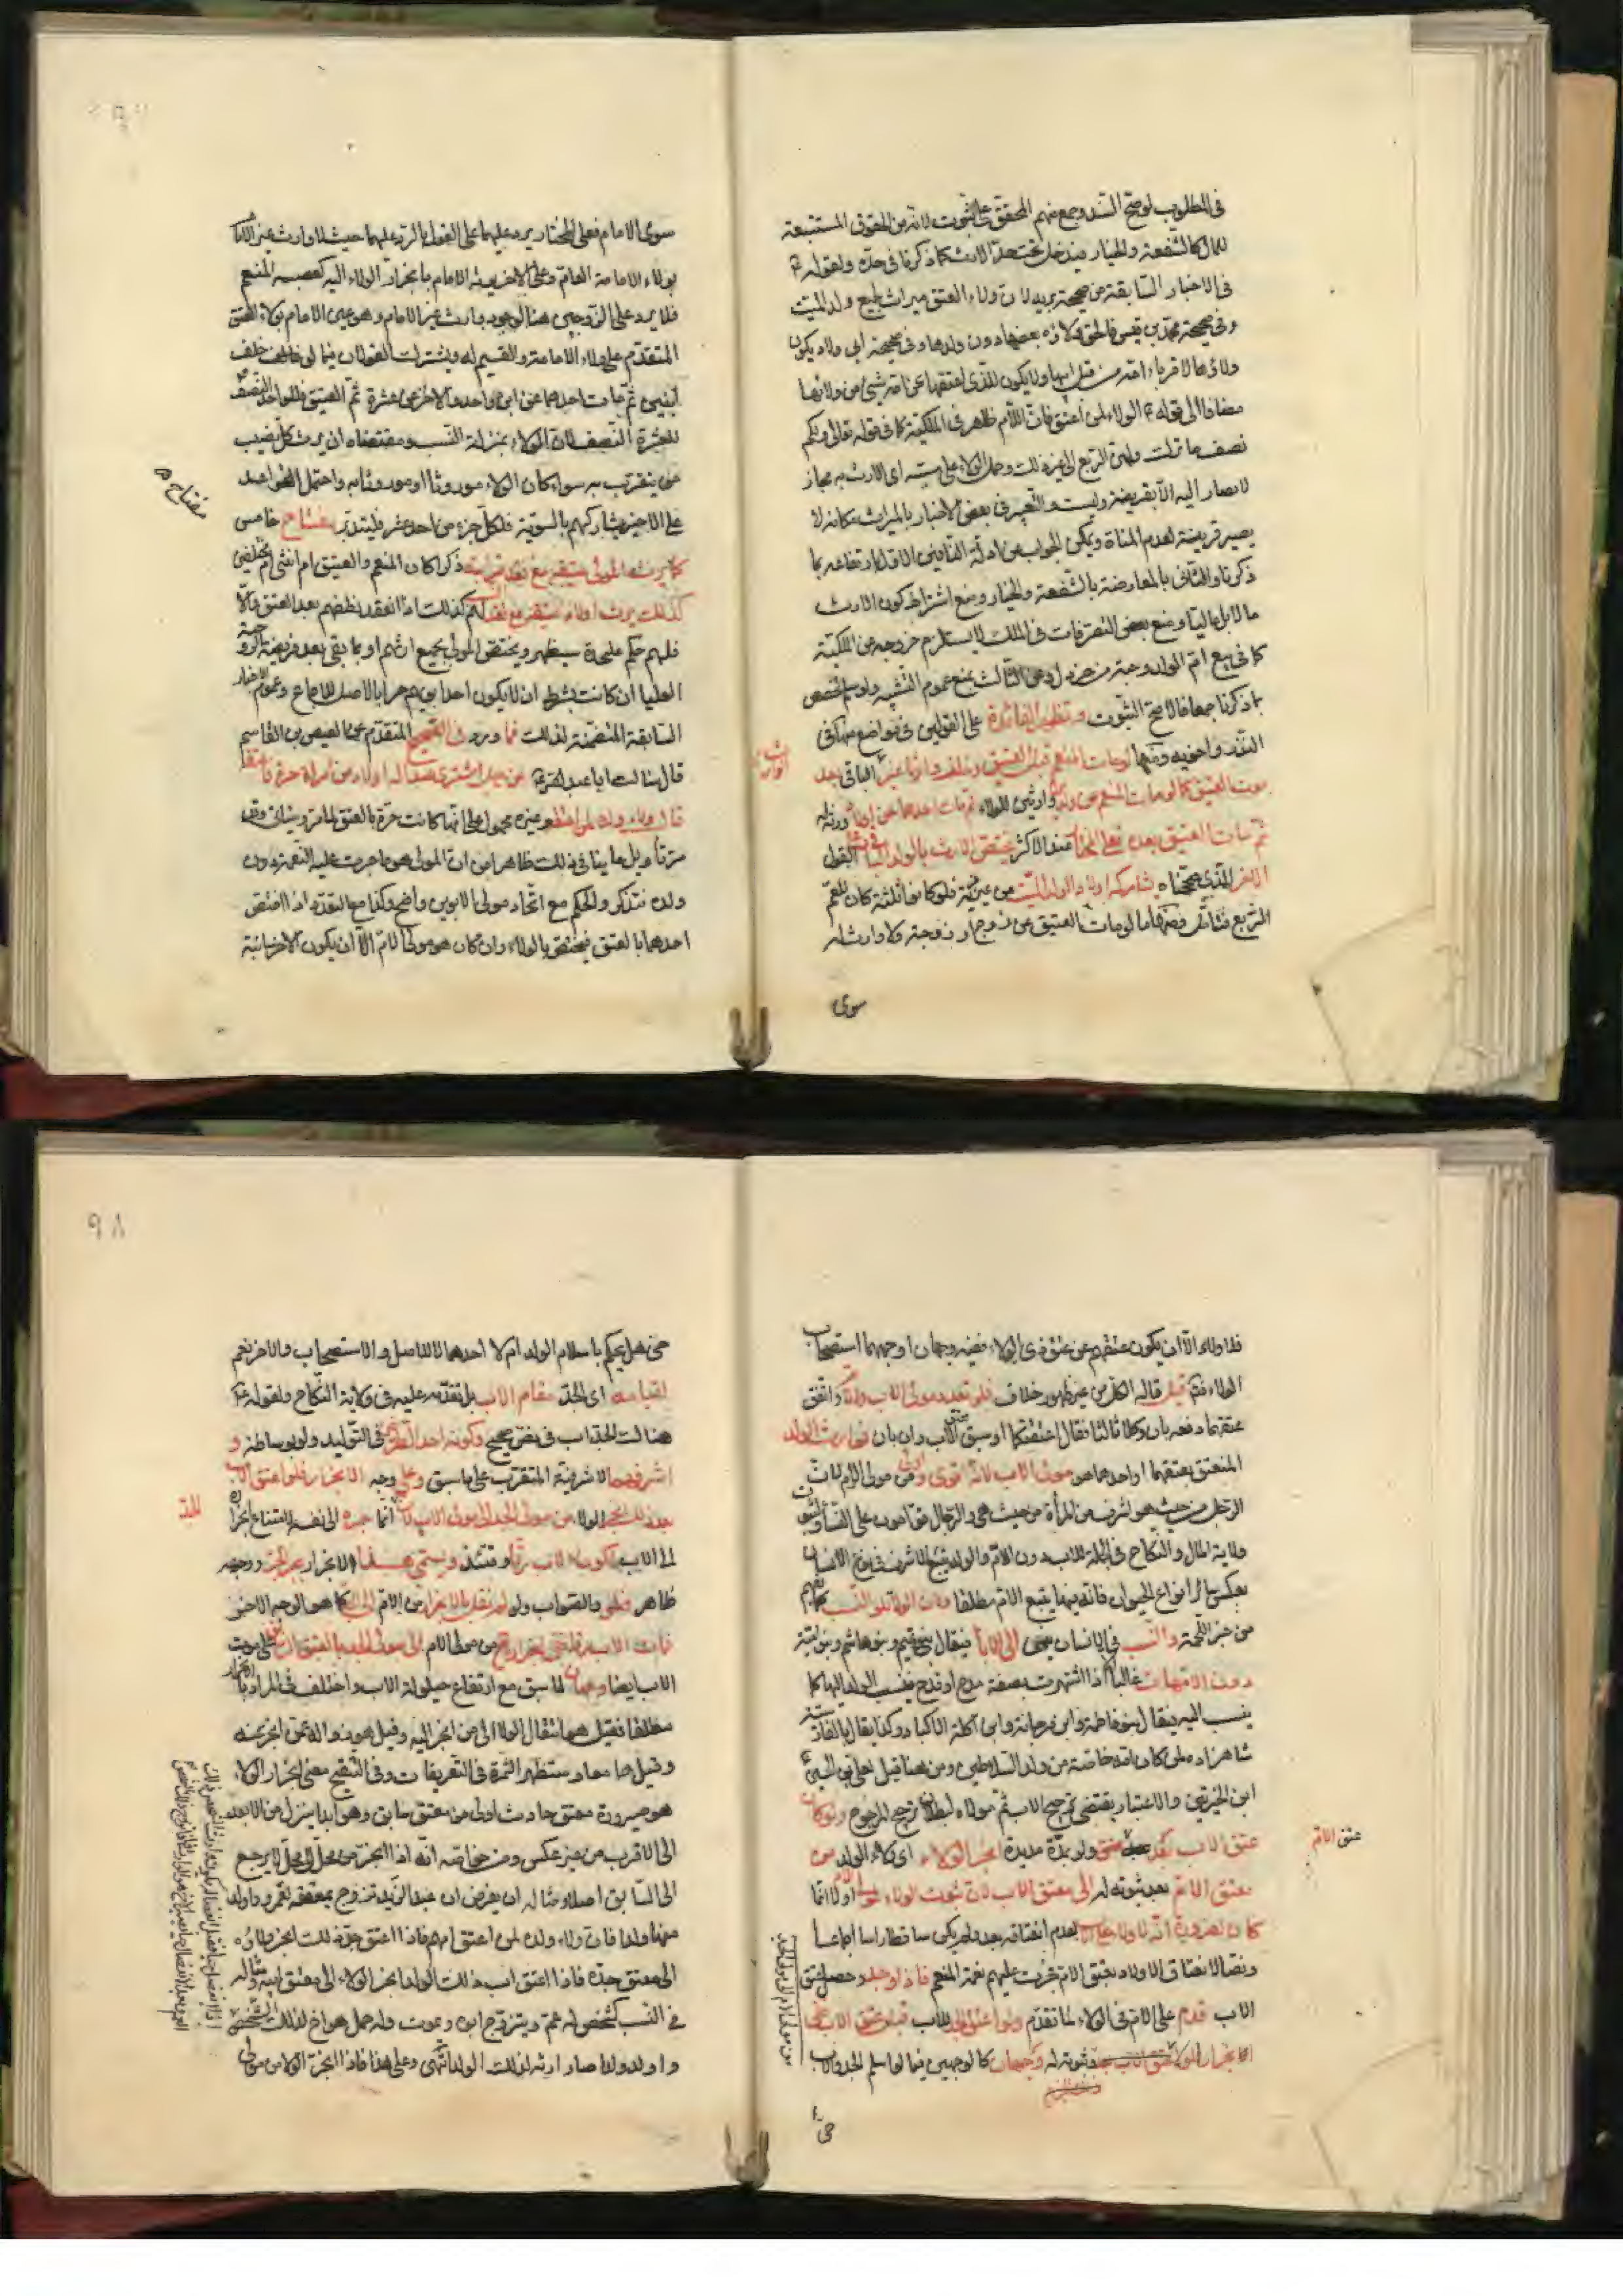 في المطلوب لوضح السند وجمع منهم المحقق على الثبوت لانه من الحقوق المستتبعة
للمال كالشفعة والخيار فيدخل تحت حد الارث كما ذكرنا في حده ولقوله ع
في الاخبار السابقة من صحيحة بريد لان ولاء العتق ميراث لجميع ولد الميت
وفي صحيحة محمد بن قيس فالحق ولاؤه بعضها دون ولدها وفي صحيحة ابي ولاد يكون
ولاؤها لاقرباء امه من قبل ابيها ولا يكون للذي اعتقها عن امه شيئ من ولائها
مضافا الى قوله ع الولاء لمن اعتق فان اللام ظاهر في الملكية كما في قوله تعالى ولكم
نصف ما ترك ولهن الربع الى غير ذلك وحمل الولاء على سببه اى الارث به مجاز
لا يصار اليه الا بقرينة وليست والتعبير في بعض الاخبار بالميراث مكانه لا
يصير قرينة لعدم المنافاة ويمكن الجواب عن ادلة النافين الاول ارتفاعه بما
ذكرنا والثاني بالمعارضة بالشفعة والخيار ومنع اشتراط كون الارث
مالا بل ماليا ومنع بعض التصرفات في الملك لا يستلزم خروجه عن الملكية
كما في بيع ام الولد وحبة من خردل وعن الثالث بمنع عموم التشبيه ولو سلم لخصص
بما ذكرنا جمعا فالاصح الثبوت وتظهر الفائدة على القولين في مواضع منها في
موت العتيق كما لو مات المنعم عن ولدين وارثين للولاء ثم مات احدهما عن اولاد ورثته
ثم مات العتيق بعده فعلى المختار عند الاكثر يختص الارث بالولد الباقي وعلى القول
الاخر الذي صححناه يشاركه اولاد الولد الميت من غير مرية فلو كانوا ثلثة كان للعم
الربع فتأمل ومنها ما لو مات العتيق عن زوج او زوجة ولا وارث له
سوى
سوى الامام فعلى المختار يرد عليهما على القول بالرد عليهما حيث لا وارث غير الامام
بولاء الامامة العام وعلى الاخر يرثه الامام بانجرار الولاء اليه كعصبة المنعم
فلا يرد على الزوجين هنا لوجود وارث غير الامام وهو عين الامام بولاء العتق
المتقدم على ولاء الامامة والقسيم له ويشترك القولان فيما لو خلف
ابنين ثم مات احدهما عن ابن واحد والاخر عن عشرة ثم العتيق فللواحد النصف
للعشرة النصف لان الولاء بمنزلة النسب ومقتضاه ان يرث كل نصيب
من يتقرب به سواء كان الولاء موروثا او موروثا به واحتمل القواعد
على الاخير يشاركهم بالسوية فلكل جزء من احد عشر فليتدبر مفتاح خامس
مفتاح ه
كما يرث المولى عتيقه مع فقد قرابته ذكرا كان المنعم والعتيق ام انثى ام مختلفين
كذلك يرث اولاد عتيقه مع فقدهم كذلك اذا انعقد نطفهم بعد العتق والا
فلهم حكم على حدة سيظهر ويختص المولى بجميع ارثهم او بما بقى بعد فريضة الزوجية
العليا ان كانت بشرط ان لا يكون احد ابويهم حرا بالاصل للاجماع وعموم الاخبار
السابقة المتضمنة لذلك فما ورد في الصحيح المتقدم عن العيص بن القاسم
قال سالت ابا عبد الله ع عن رجل اشترى عبدا له اولاد من امراة حرة فاعتقه
قال ولاء ولده لمن اعتقه وغيره محمول على انها كانت حرة بالعتق لما مر وسياتي وقد
مر تأويل ما ينافي ذلك ظاهرا من ان المولى هو ما جرت عليه النعمة دون
ولده فتذكر والحكم مع اتحاد مولى الابوين واضح وكذا مع التعدد اذا اختص
احدهما بالعتق فيختص بالولاء وان كان هو مولى الام الا ان يكون الاخر باقية
٩٨
فلا ولاء الا ان يكون عتقهم عن عتق ذي الولاء ففيه وجهان اوجههما استصحاب
الولاء فتم قيل قاله الكل من غير ظهور خلاف فلو تعدد مولى الاب والام واتفق
عتقهما دفعة بان وكلا ثالثا فقال اعتقتكما او سبق عتق الاب وان بان توارث الولد
المنعتق بعتقهما او احدهما هو مولى الاب لانه اقوى واولى من مولى الام لان
الرجل من حيث هو اشرف من المرأة من حيث هي والرجال قوامون على النساء ولثبوت
ولاية المال والنكاح في الجملة للاب دون الام والولد يتبع الاشرف في نوع الانسان
بعكس ساير انواع الحيوان فانه فيها يتبع الام مطلقا ولان الولاء تلو النسب كما تقدم
من خبر اللحمة والنسب في الانسان يعزى الى الاباء فيقال بنو تميم وبنو هاشم وبنو امية
دون الامهات غالبا الا اذا اشتهرت بصفة مدح او قدح فينسب الولد اليها كما
ينسب اليه فيقال بنو فاطمة وابن مرجانة وابن اكلة الاكباد وكذا يقال بالفارسية
شاهزاده لمن كان امه خاصة من ولد السلاطين ومن هنا قيل لعلي بن الحسين
ابن الخيرتين والاعتبار يقتضي ترجيح الاب ثم مولاه لبطلان ترجيح المرجوح ولو كان
عتق الاب بعد عتق ولو بمدة مديدة انجر الولاء اى ولاء الولد من
عتق الام
معتق الام بعد ثبوته له الى معتق الاب لان ثبوت الولاء لمولى الام اولا انما
كان لضرورة انه لا ولاء على الاب لعدم انعتاقه بعد ولم يكن ساقطا راسا اجماعا
ونصا لانعتاق الاولاد بعتق الام فجرت عليهم نعمة المنعم فاذا وجد وحصل عتق
الاب قدم على الام في الولاء لما تقدم ولو اعتق الجد للاب قبل عتق الاب ففي
انجرار الولاء ثبوته له وجهان كالوجهين فيما لو اسلم الجد والاب
حي
حي هل يحكم باسلام الولد ام لا احدهما لا للاصل والاستصحاب والاخر نعم
لقيامه اى الجد مقام الاب بل تقدمه عليه في ولاية النكاح ولقوله ع
هنالك الجد اب في نص صحيح وكونه احد الطرفين في التوليد ولو بوساطة و
اشرفهما لاشرفية المتقرب على ما سبق وعلى وجه الانجرار فلو اعتق الاب
بعد ذلك انجر الولاء من مولى الجد الى مولى الاب لانه انما جره الى نفسه لامتناع انجراره
الى الاب لكون الاب رقا وقتئذ ويسمى هذا الانجرار بجر الجر ووجهه
ظاهر فلو والصواب ولو لم نقل بالانجرار من الام الى الجد كما هو الوجه الاخر
فمات الاب رقا ففي انجراره ح من مولى الام الى مولى الجد بالعتق السابق على موت
الاب ايضا وجهان لما سبق مع ارتفاع حيلولة الاب واختلف في المراد بالانجرار
مطلقا فقيل هو انتقال الولاء الى من انجر اليه وقيل هو زواله عمن انجر عنه
وقيل هما معا وستظهر الثمرة في التعريفات وفي التنقيح معنى انجرار الولاء
هو صيرورة معتق حادث اولى من معتق سابق وهو ابدا ينزل من الابعد
الى الاقرب من غير عكس ومن خواصه انه اذا انجر من محل الى محل لا يرجع
الى السابق اصلا ومثاله ان يفرض ان عبدا لزيد تزوج بمعتقة لعمرو واولد
منها ولدا فان ولاء ولده لمن اعتق امهم فاذا اعتق جد ذلك انجر ولاؤه
الى معتق جده فاذا اعتق اب ذلك الولد انجر الولاء الى معتق ابيه ومثاله
في النسب كشخص له عم ويتزوج ابوه ويموت وله حمل هو اخ لذلك الشخص
واولد ولدا صار ارثه لذلك الولد انتهى وعلى هذا فاذا انجر الولاء من مولى